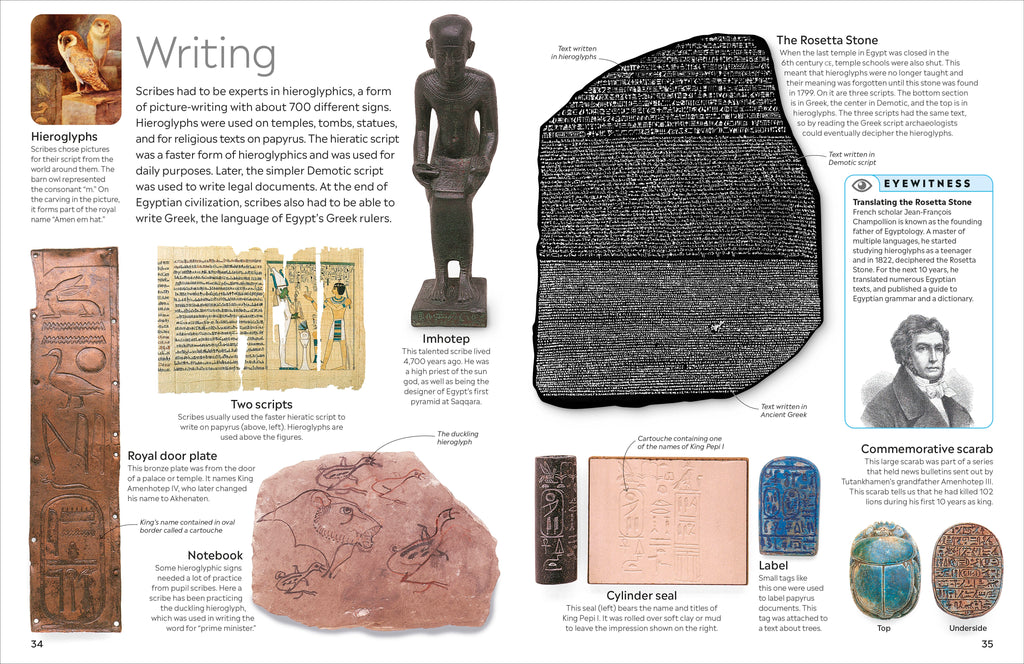 Writing
Scribes had to be experts in hieroglyphics, a form
of picture-writing with about 700 different signs.
Hieroglyphs were used on temples, tombs, statues,
and for religious texts on papyrus. The hieratic script
was a faster form of hieroglyphics and was used for
daily purposes. Later, the simpler Demotic script
was used to write legal documents. At the end of
Egyptian civilization, scribes also had to be able to
write Greek, the language of Egypt's Greek rulers.
Hieroglyphs
Scribes chose pictures
for their script from the
world around them. The
barn owl represented
the consonant "m." On
the carving in the picture,
it forms part of the royal
name "Amen em hat."
Two scripts
Scribes usually used the faster hieratic script to
write on papyrus (above, left). Hieroglyphs are
used above the figures.
Imhotep
This talented scribe lived
4,700 years ago. He was
a high priest of the sun
god, as well as being the
designer of Egypt's first
pyramid at Saqqara.
Royal door plate
This bronze plate was from the door
of a palace or temple. It names King
Amenhotep IV, who later changed
his name to Akhenaten.
King's name contained in oval
border called a cartouche
The duckling
hieroglyph
Notebook
Some hieroglyphic signs
needed a lot of practice
from pupil scribes. Here a
scribe has been practicing
the duckling hieroglyph,
which was used in writing the
word for "prime minister."
34
Text written
in hieroglyphs
The Rosetta Stone
When the last temple in Egypt was closed in the
6th century CE, temple schools were also shut. This
meant that hieroglyphs were no longer taught and
their meaning was forgotten until this stone was found
in 1799. On it are three scripts. The bottom section
is in Greek, the center in Demotic, and the top is in
hieroglyphs. The three scripts had the same text,
so by reading the Greek script archaeologists
could eventually decipher the hieroglyphs.
Text written in
Demotic script
EYEWITNESS
Translating the Rosetta Stone
French scholar Jean-François
Champollion is known as the founding
father of Egyptology. A master of
multiple languages, he started
studying hieroglyphs as a teenager
and in 1822, deciphered the Rosetta
Stone. For the next 10 years, he
translated numerous Egyptian
texts, and published a guide to
Egyptian grammar and a dictionary.
Text written in
Ancient Greek
Cartouche containing one
of the names of King Pepi I
Cylinder seal
This seal (left) bears the name and titles of
King Pepi I. It was rolled over soft clay or mud
to leave the impression shown on the right.
Label
Small tags like
this one were used
to label papyrus
documents. This
tag was attached to
a text about trees.
Commemorative scarab
This large scarab was part of a series
that held news bulletins sent out by
Tutankhamen's grandfather Amenhotep III.
This scarab tells us that he had killed 102
lions during his first 10 years as king.
Top
Underside
35